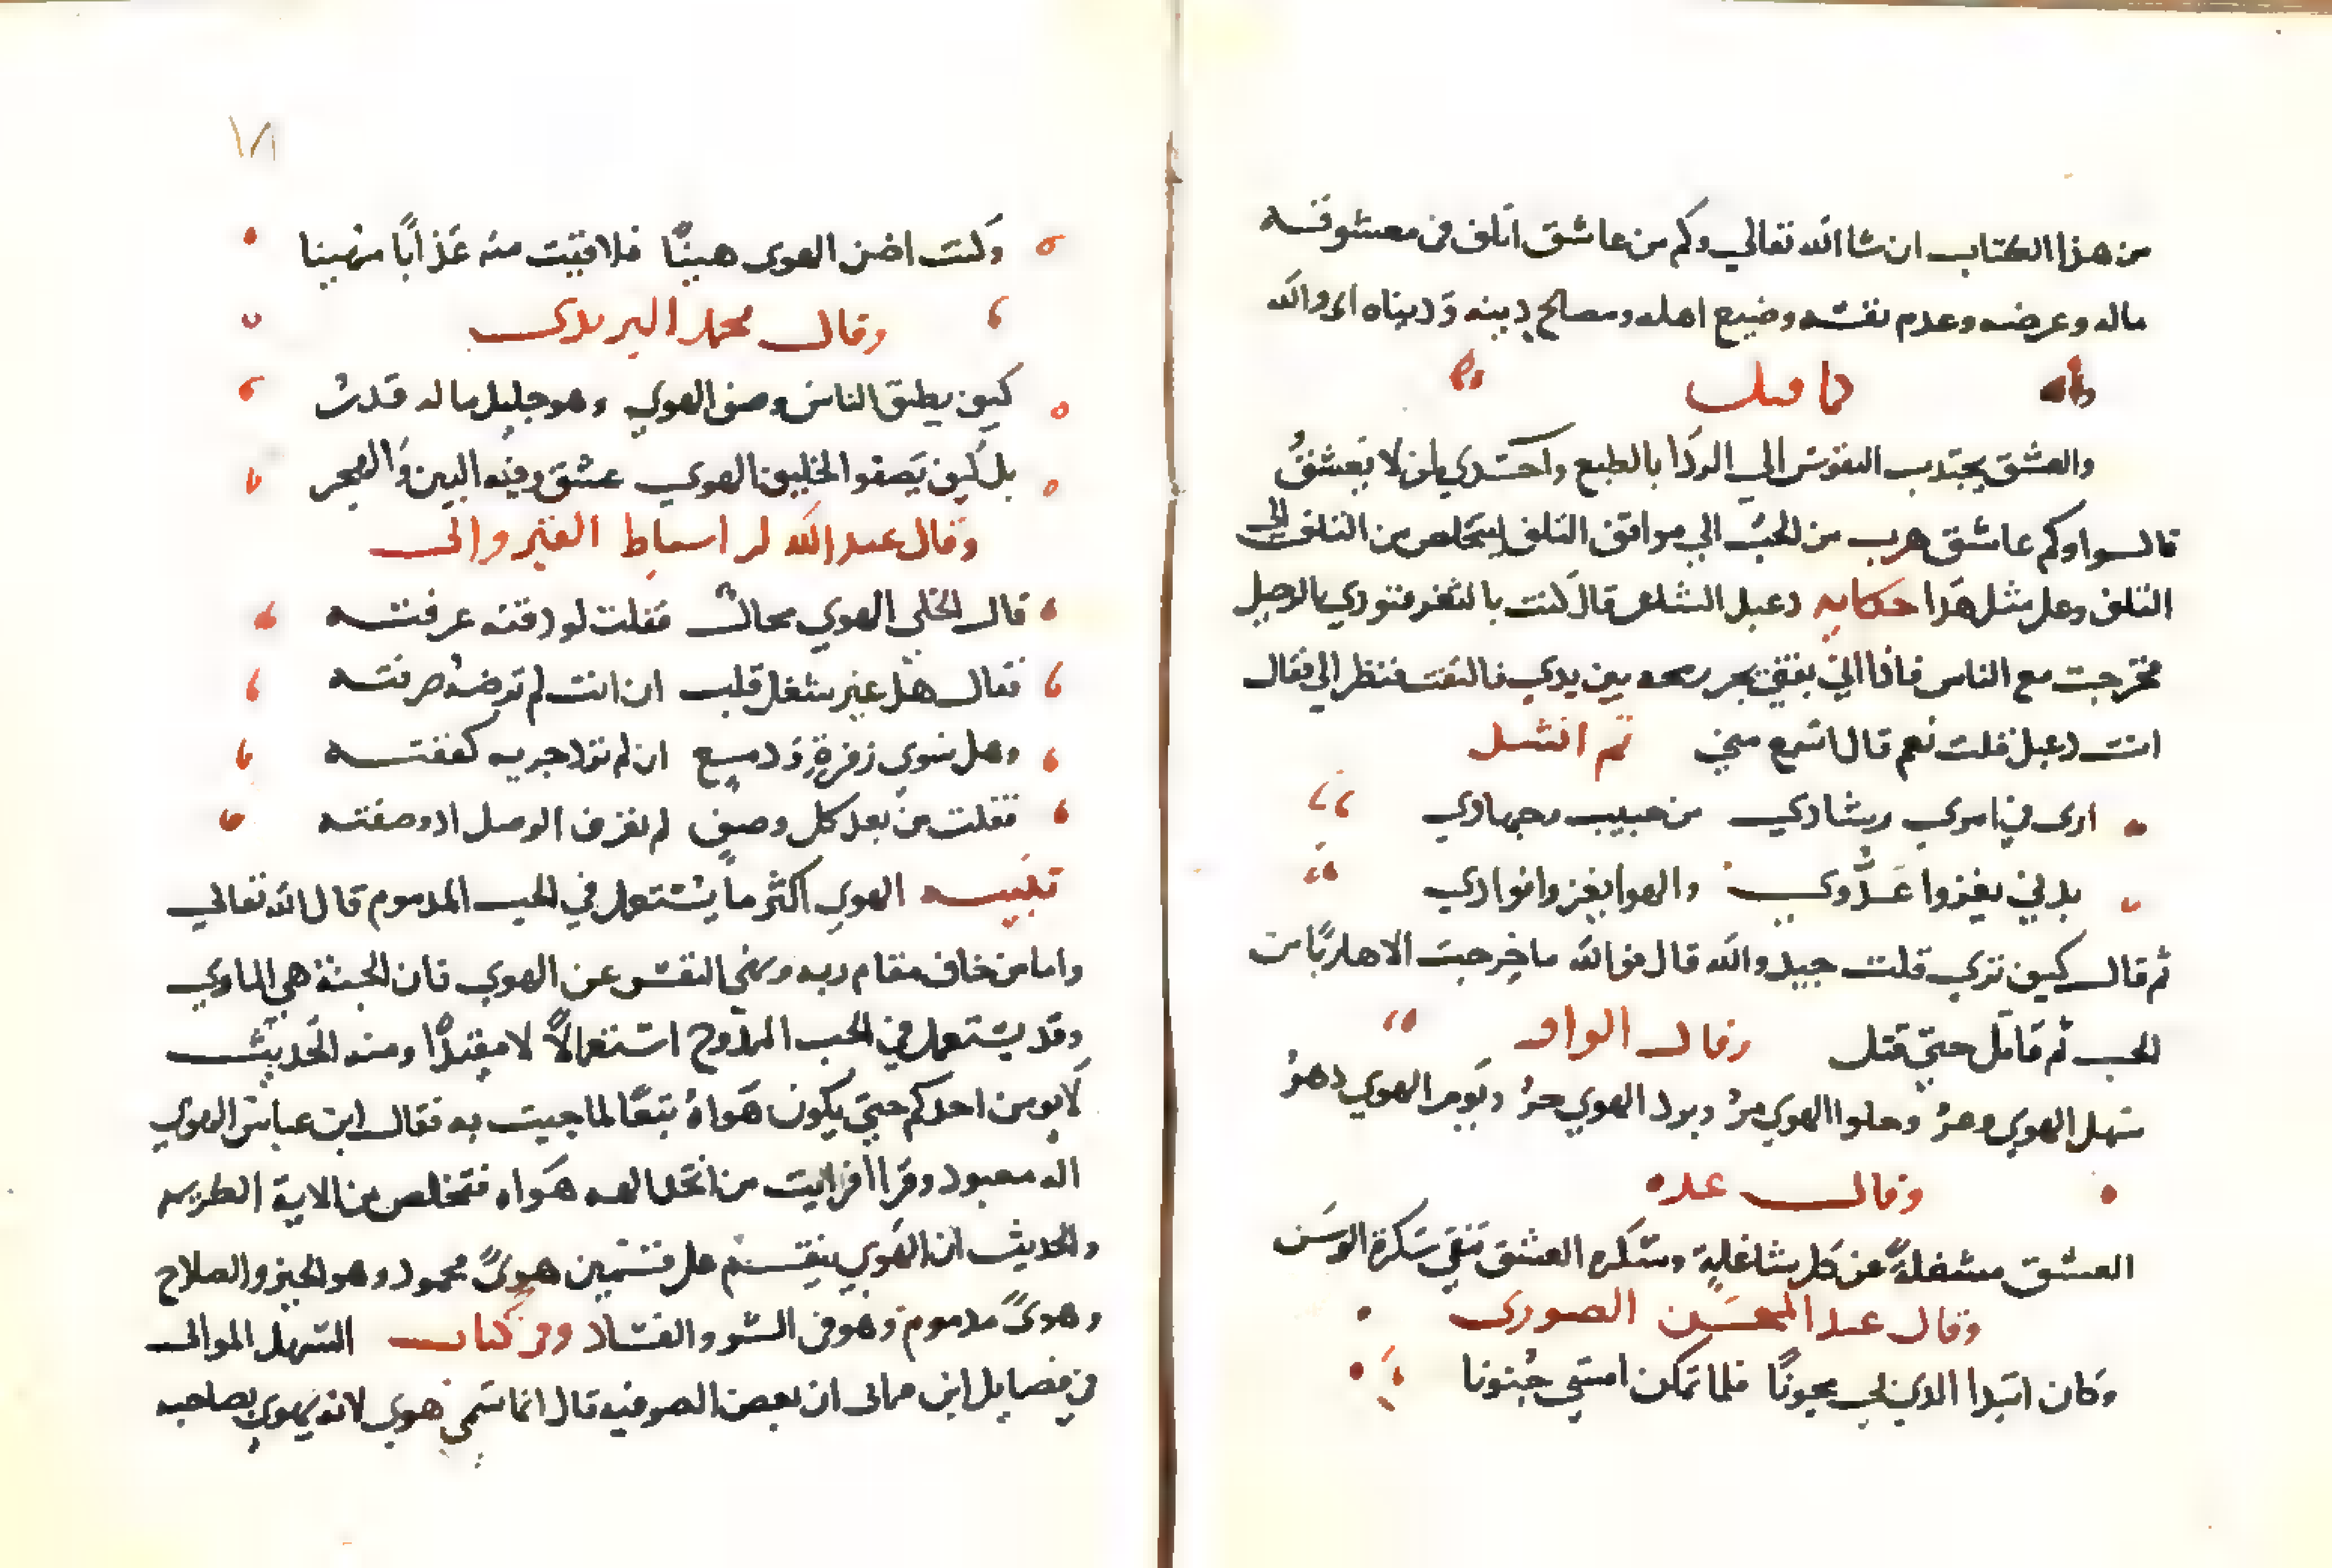 من هذا الكتاب ان شا الله تعالي وكم من عاشق اتلف في معشوقته
ماله وعرضه وعدم نفسه وضيع اهله ومصالح دينه ودنياه اي والله
كما قيل
والعشق يجتدب النفوس الي الردا بالطبع واحسدي لمن لا يعشق
قالوا وكم عاشق هرب من الحب الي مواقف التلف ليتخلص من التلف الي
التلف وعلي مثل هذا حكايه دعبل الشاعر قال كنت بالثغر فنودي بالرحيل
فخرجت مع الناس فاذا انا بفتي يجر رمحه بين يدي فالتفت فنظر الي فقال
انت دعبل قلت نعم قال اسمع مني ثم انشد
اري في امري رشادي من حبيب وجهادي
بدني يغزوا عدوي والهوا يغزوا فوادي
ثم قال كيف تري قلت جيد والله قال فوالله ما خرجت الا هاربا من
الحب ثم قاتل حتي قتل وقال الواو
سهل الهوي وعر وحلوا الهوي مر وبرد الهوي حر ويوم الهوي دهر
وقال غيره
العشق مشغلة عن كل شاغلة وسكره العشق تنفي سكرة الوسن
وقال عبد المحسن الصوري
وكان ابتدا الذي بي مجونا فلما تمكن امسي جنونا
١٧١
وكنت اضن الهوي هينا فلاقيت منه عذابا مهينا
وقال محمد اليزيدي
كيف يطيق الناس وصف الهوي وهو جليل ما له قدر
بل كيف يصفو الخليف الهوي عشق وفيه البين والهجر
وقال عبد الله بن اسباط القيرواني
قال الخلي الهوي محال فقلت لو ذقته عرفته
فقال هل غير شغل قلب ان انت لم ترضه صرفته
وهل سوي زفرة ودمع ان لم ترد جريه كففته
فقلت من بعد كل وصف لم تعرف الوصل اذ وصفته
تنبيه الهوي اكثر ما يستعمل في الحب المذموم قال الله تعالي
واما من خاف مقام ربه ونهي النفس عن الهوي فان الجنة هي الماوي
وقد يستعمل في الحب الممدوح استعمالا لا مقيدا ومنه الحديث
لا يومن احدكم حتي يكون هواه تبعا لما جيت به فقال ابن عباس الهوي
اله معبود وقرا افرايت من اتخذ الهه هواه فتخلص من الاية الكريمه
والحديث ان الهوي ينقسم علي قسمين هوي محمود وهو الخير والصلاح
وهوي مذموم وهو في الشر والفساد وفي كتاب السهل الموالي
في فضايل ابن هاني ان بعض الصوفيه قال انما سمي هوي لانه يهوي بصاحبه